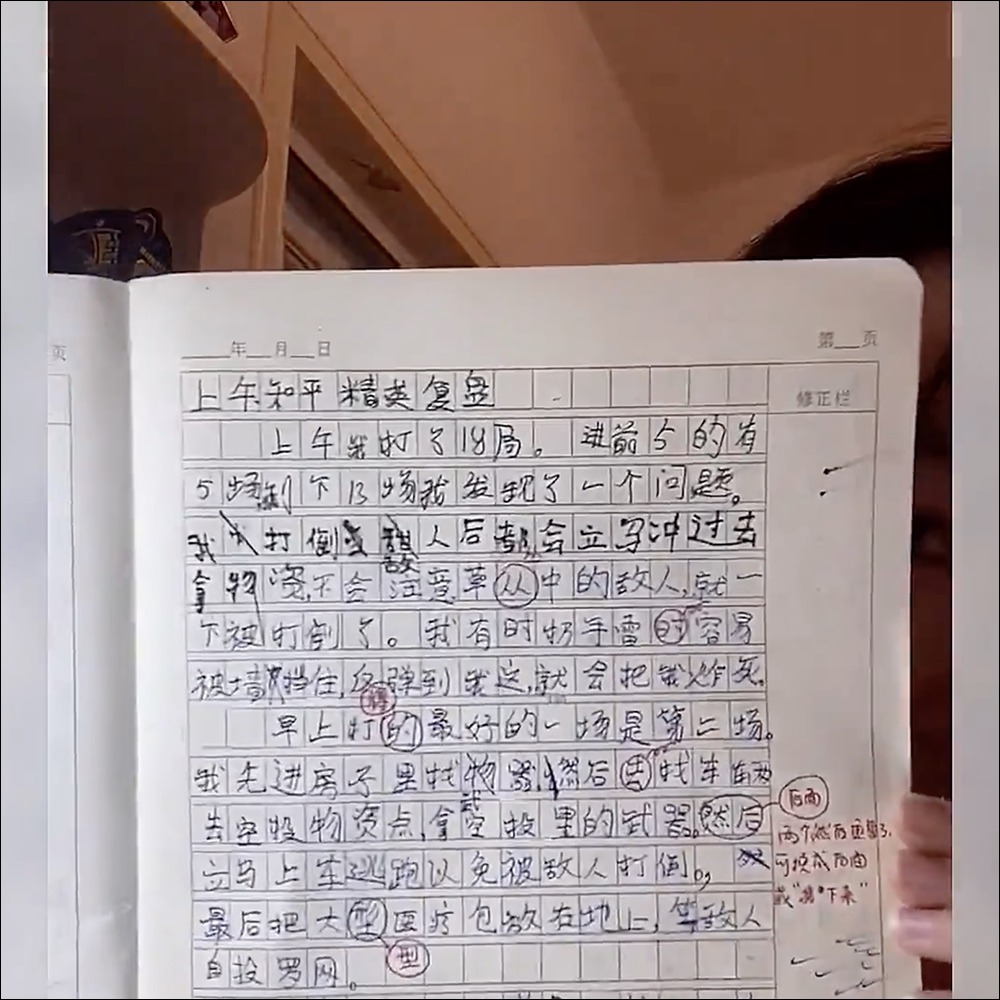 页
年 月 日
第 页
修正栏
上午和平精英复盘
上午我打了18局。进前5的有
5场剩下13场我发现了一个问题。
我打倒敌人后都会立马冲过去
拿物资,不会注意草从中的敌人,就一
下被打倒了。我有时扔手雷时容易
被墙挡住,弹到我这,就会把我炸死。
得
早上打的最好的一场是第二场。
我先进房子里找武器,然后去找车辆
去空投物资点,拿空投里的武器。然后
立马上车逃跑以免被敌人打倒。
最后把大型医疗包放在地上,等敌人
自投罗网。
型
后面
两个然后重复了,
可换成后面
或"接下来"